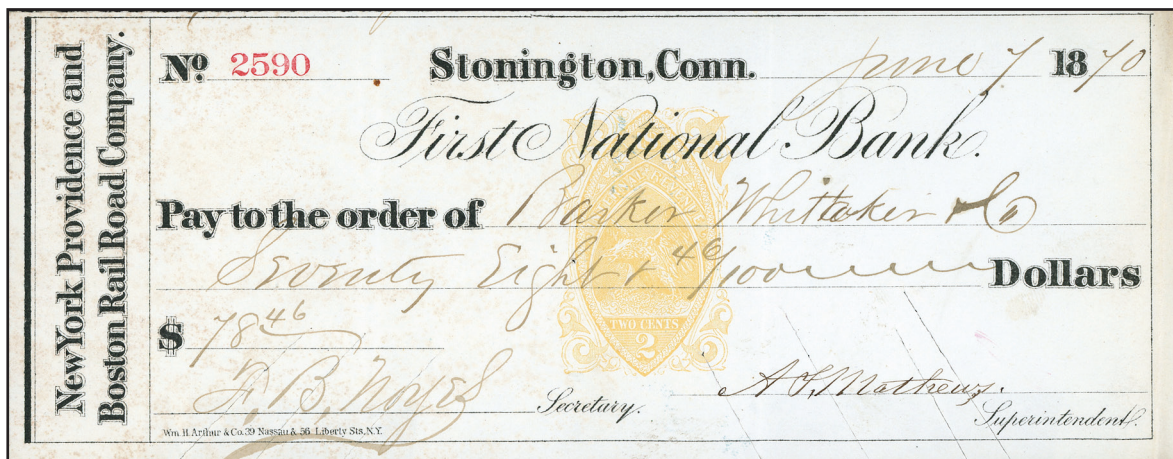 New York Providence and
Boston Rail Road Company.
No. 2590 Stonington, Conn. June 7 1870
First National Bank.
Pay to the order of Barker Whittaker & Co
Seventy Eight & 46/100 Dollars
$ 78 46
TWO CENTS
2
F. B. Noyes Secretary. A S Mathews. Superintendent.
Wm. H. Arthur & Co. 39 Nassau & 56 Liberty Sts, N.Y.